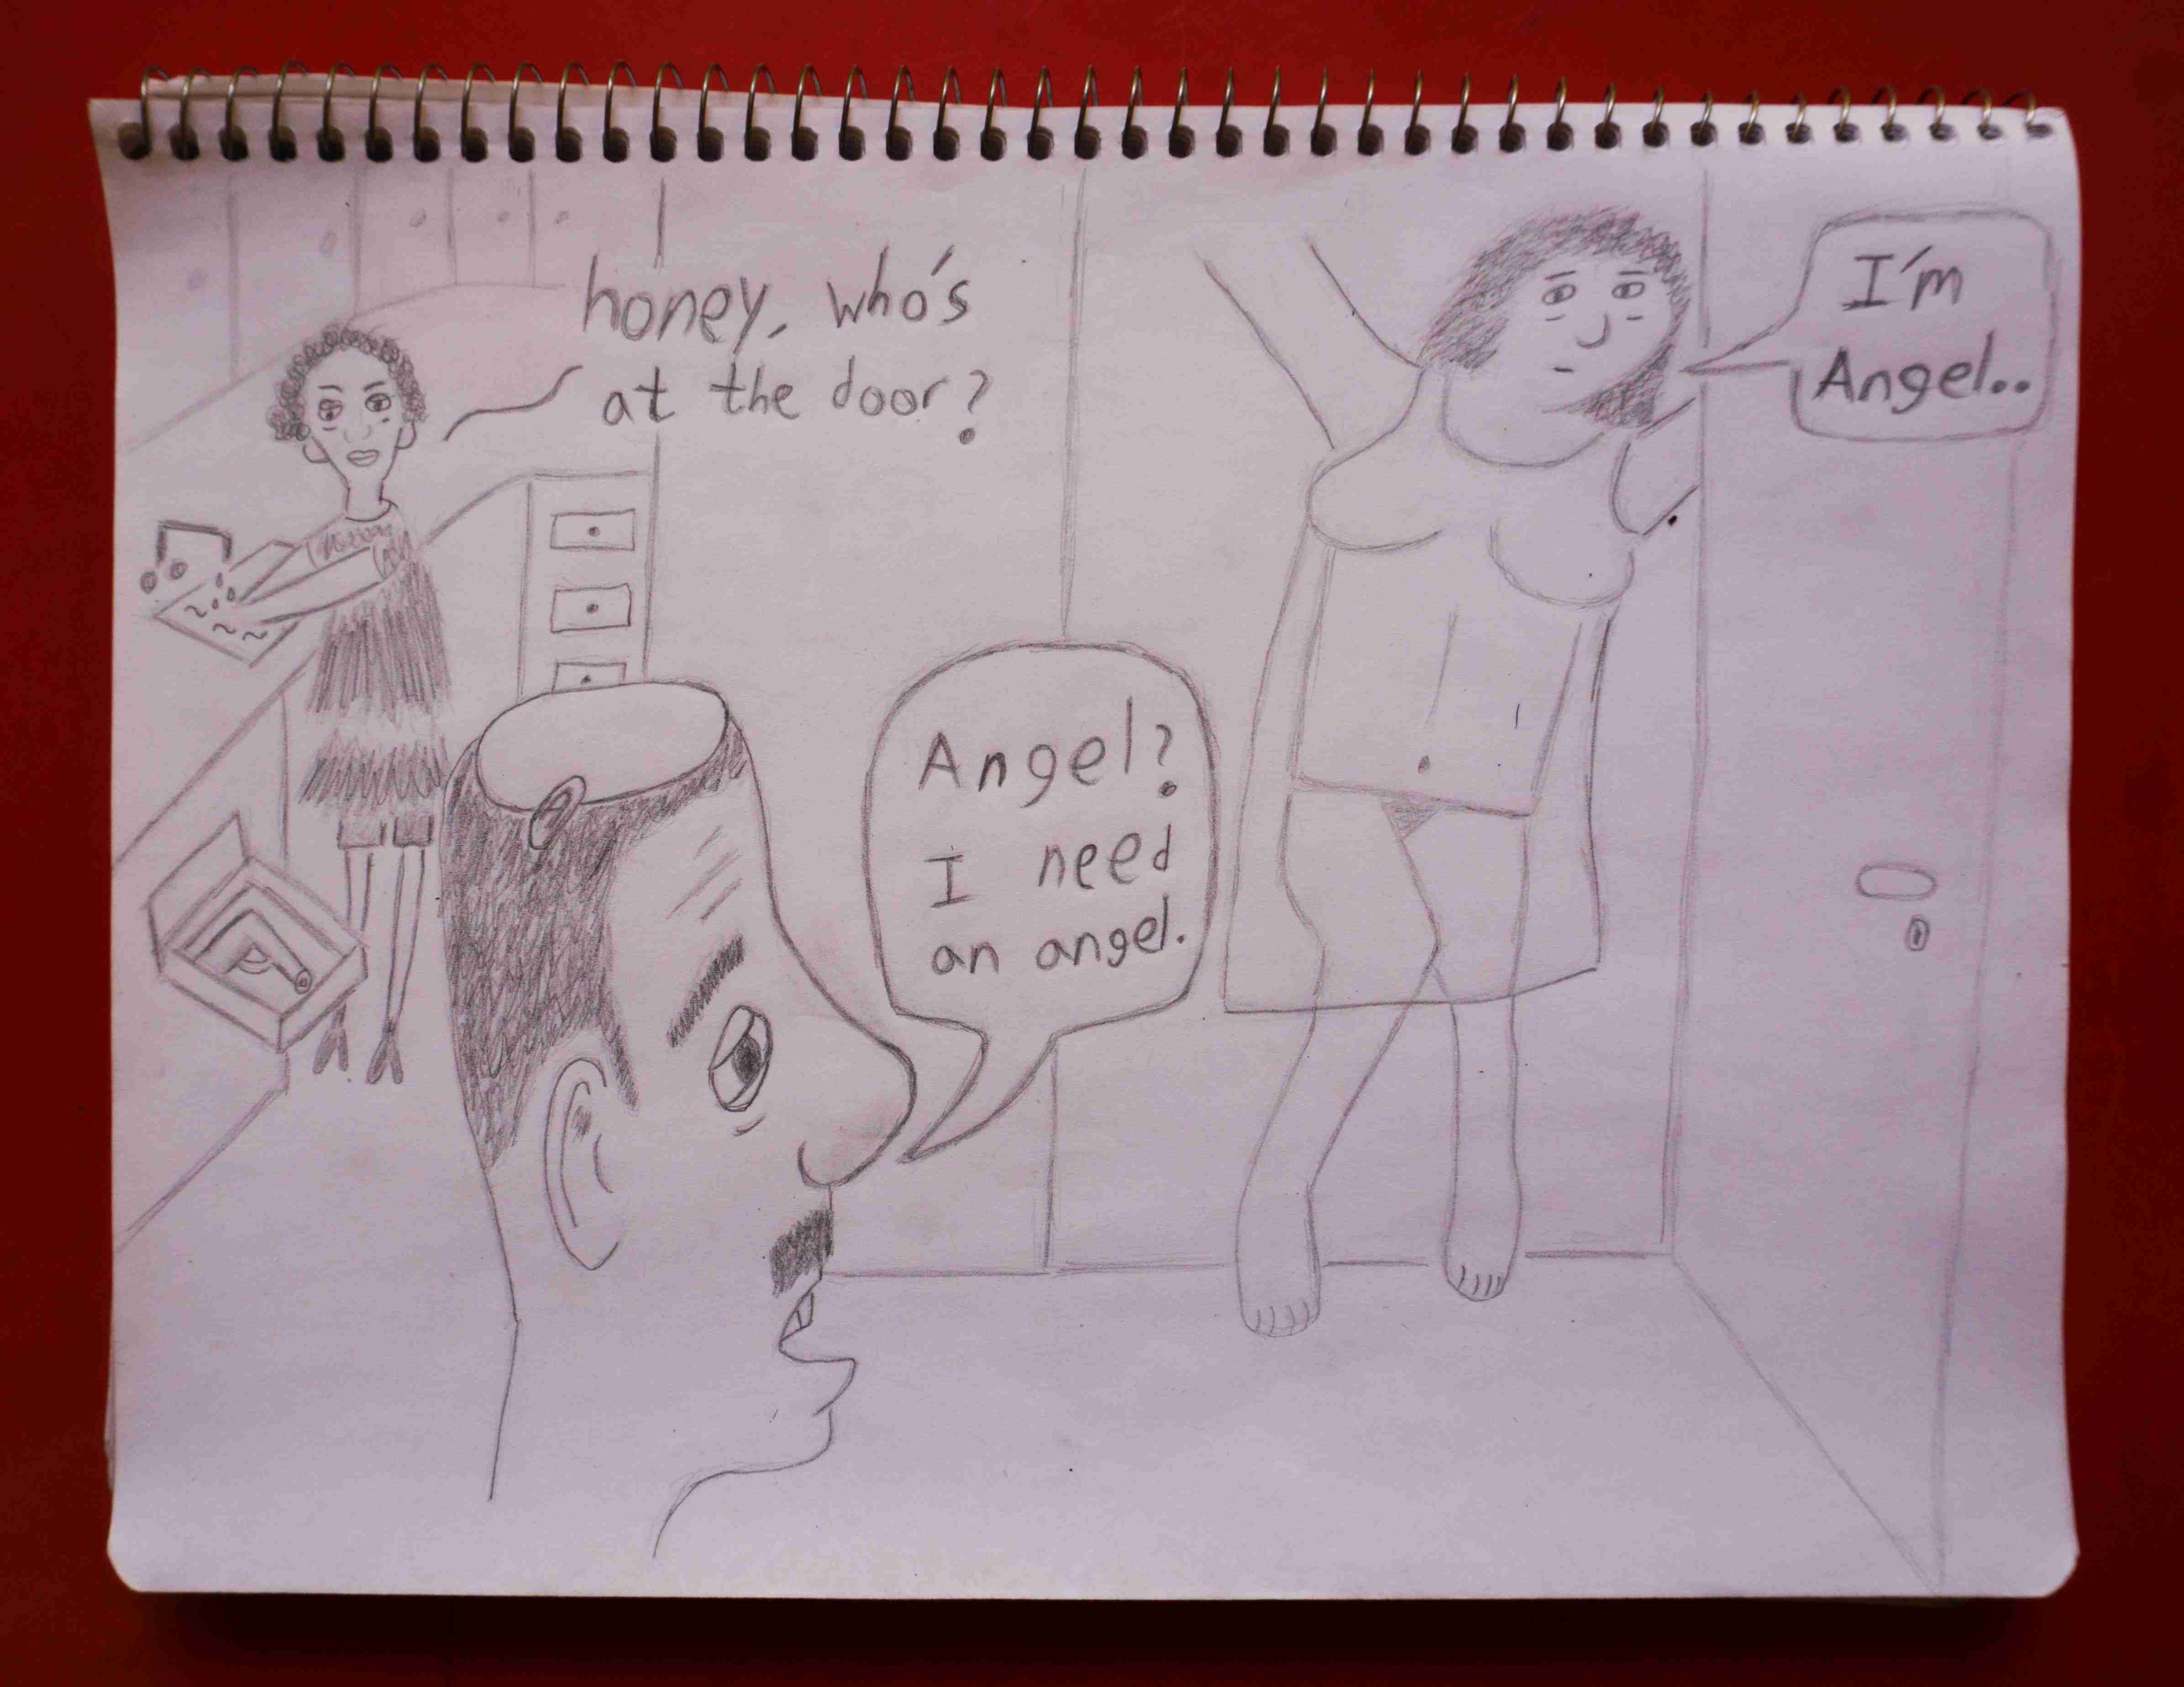 honey, who's
at the door?
I'm
Angel..
Angel?
I need
an angel.